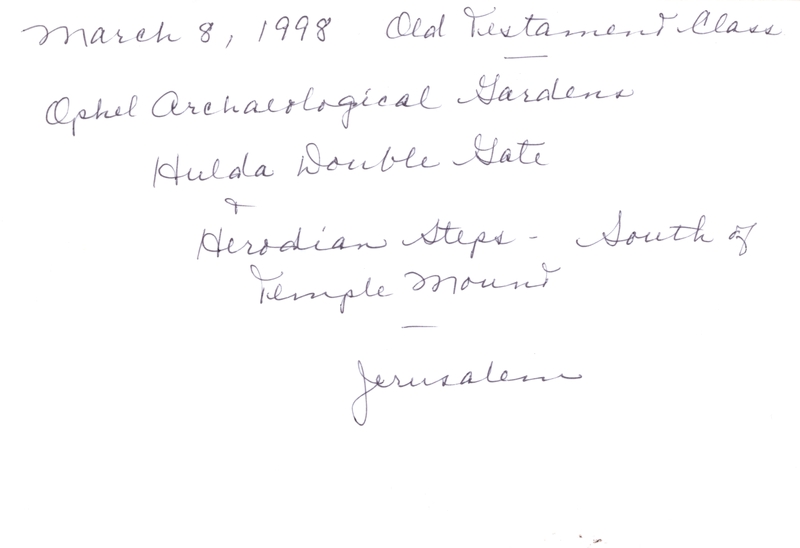 March 8, 1998 Old Testament Class
Ophel Archaeological Gardens
Hulda Double Gate
&
Herodian Steps - South of
Temple Mount
Jerusalem